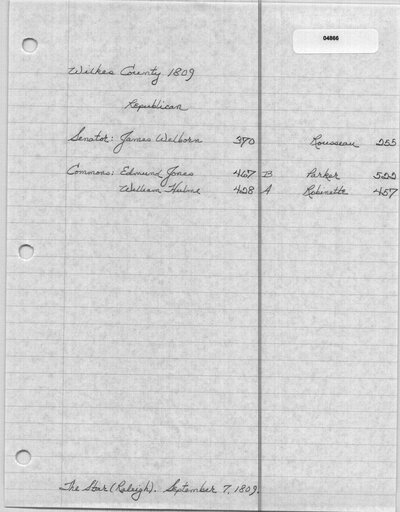 04866
Wilkes County 1809
Republican
Senator: James Welborn 390 Rousseau 255
Commons: Edmund Jones 467 B Parker 522
William Hulme 428 A Robinette 457
The Star (Raleigh). September 7, 1809.